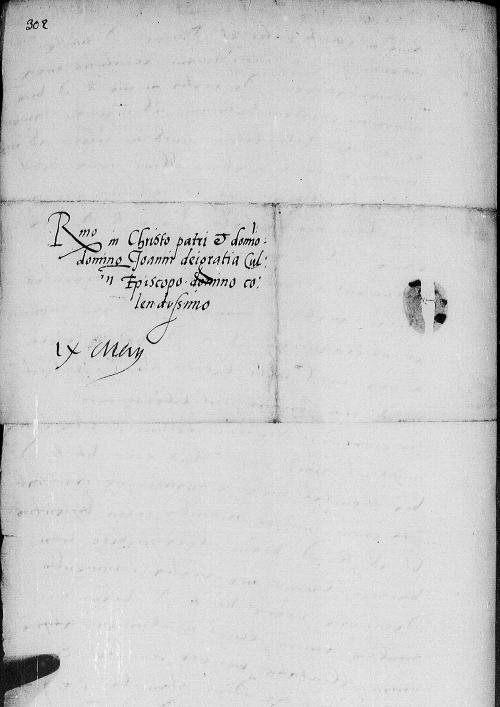 302
Rmo in Christo patri & domi:
domino Joanni dei gratia Cul:
n Episcopo domino co:
lendissimo
IX Maij